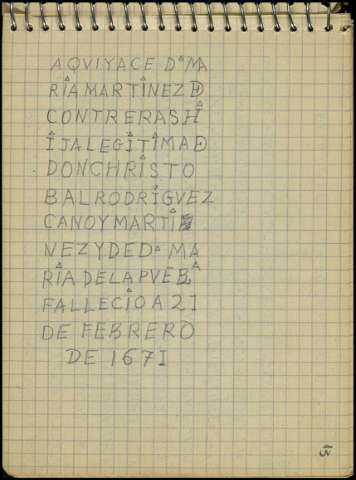 AQVIYACE Dª MA
RIAMARTINEZ D
CONTRERASH
IJALEGITIMA D
DONCHRISTO
BALRODRIGVEZ
CANOYMARTI
NEZYDEDª MA
RIADELAPVEBLA
FALLECIOA21
DE FEBRERO
DE 1671